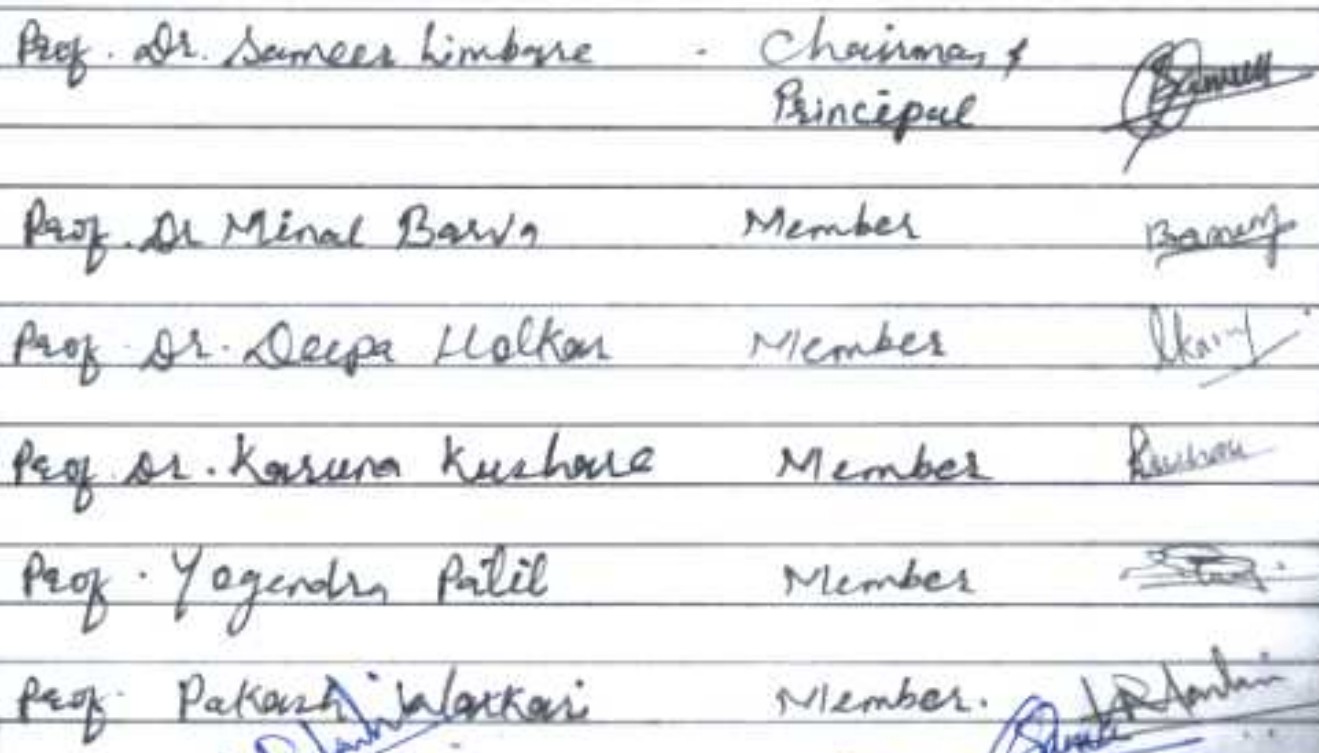 Prof. Dr. Sameer Limbare - Chairman &
Principal
Prof. Dr Minal Barva
Member
Prof. Dr. Deepa Holkar Member
Prof. Dr. Karuna Kushare Member
Prof. Yogendra Patil Member
Prof. Pakash Member.